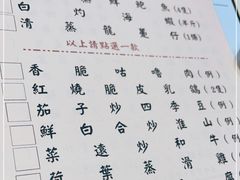 鮮鮑魚(4隻)
白灼海蝦(半斤)
清蒸龍躉仔(1條)
以上請點選一款
香脆咕嚕肉(例)
紅燒脆皮乳鴿(例)
茄子炒四季豆(例)
鮮白合炒淮山
菜遠炒和牛
荷蒸滑雞